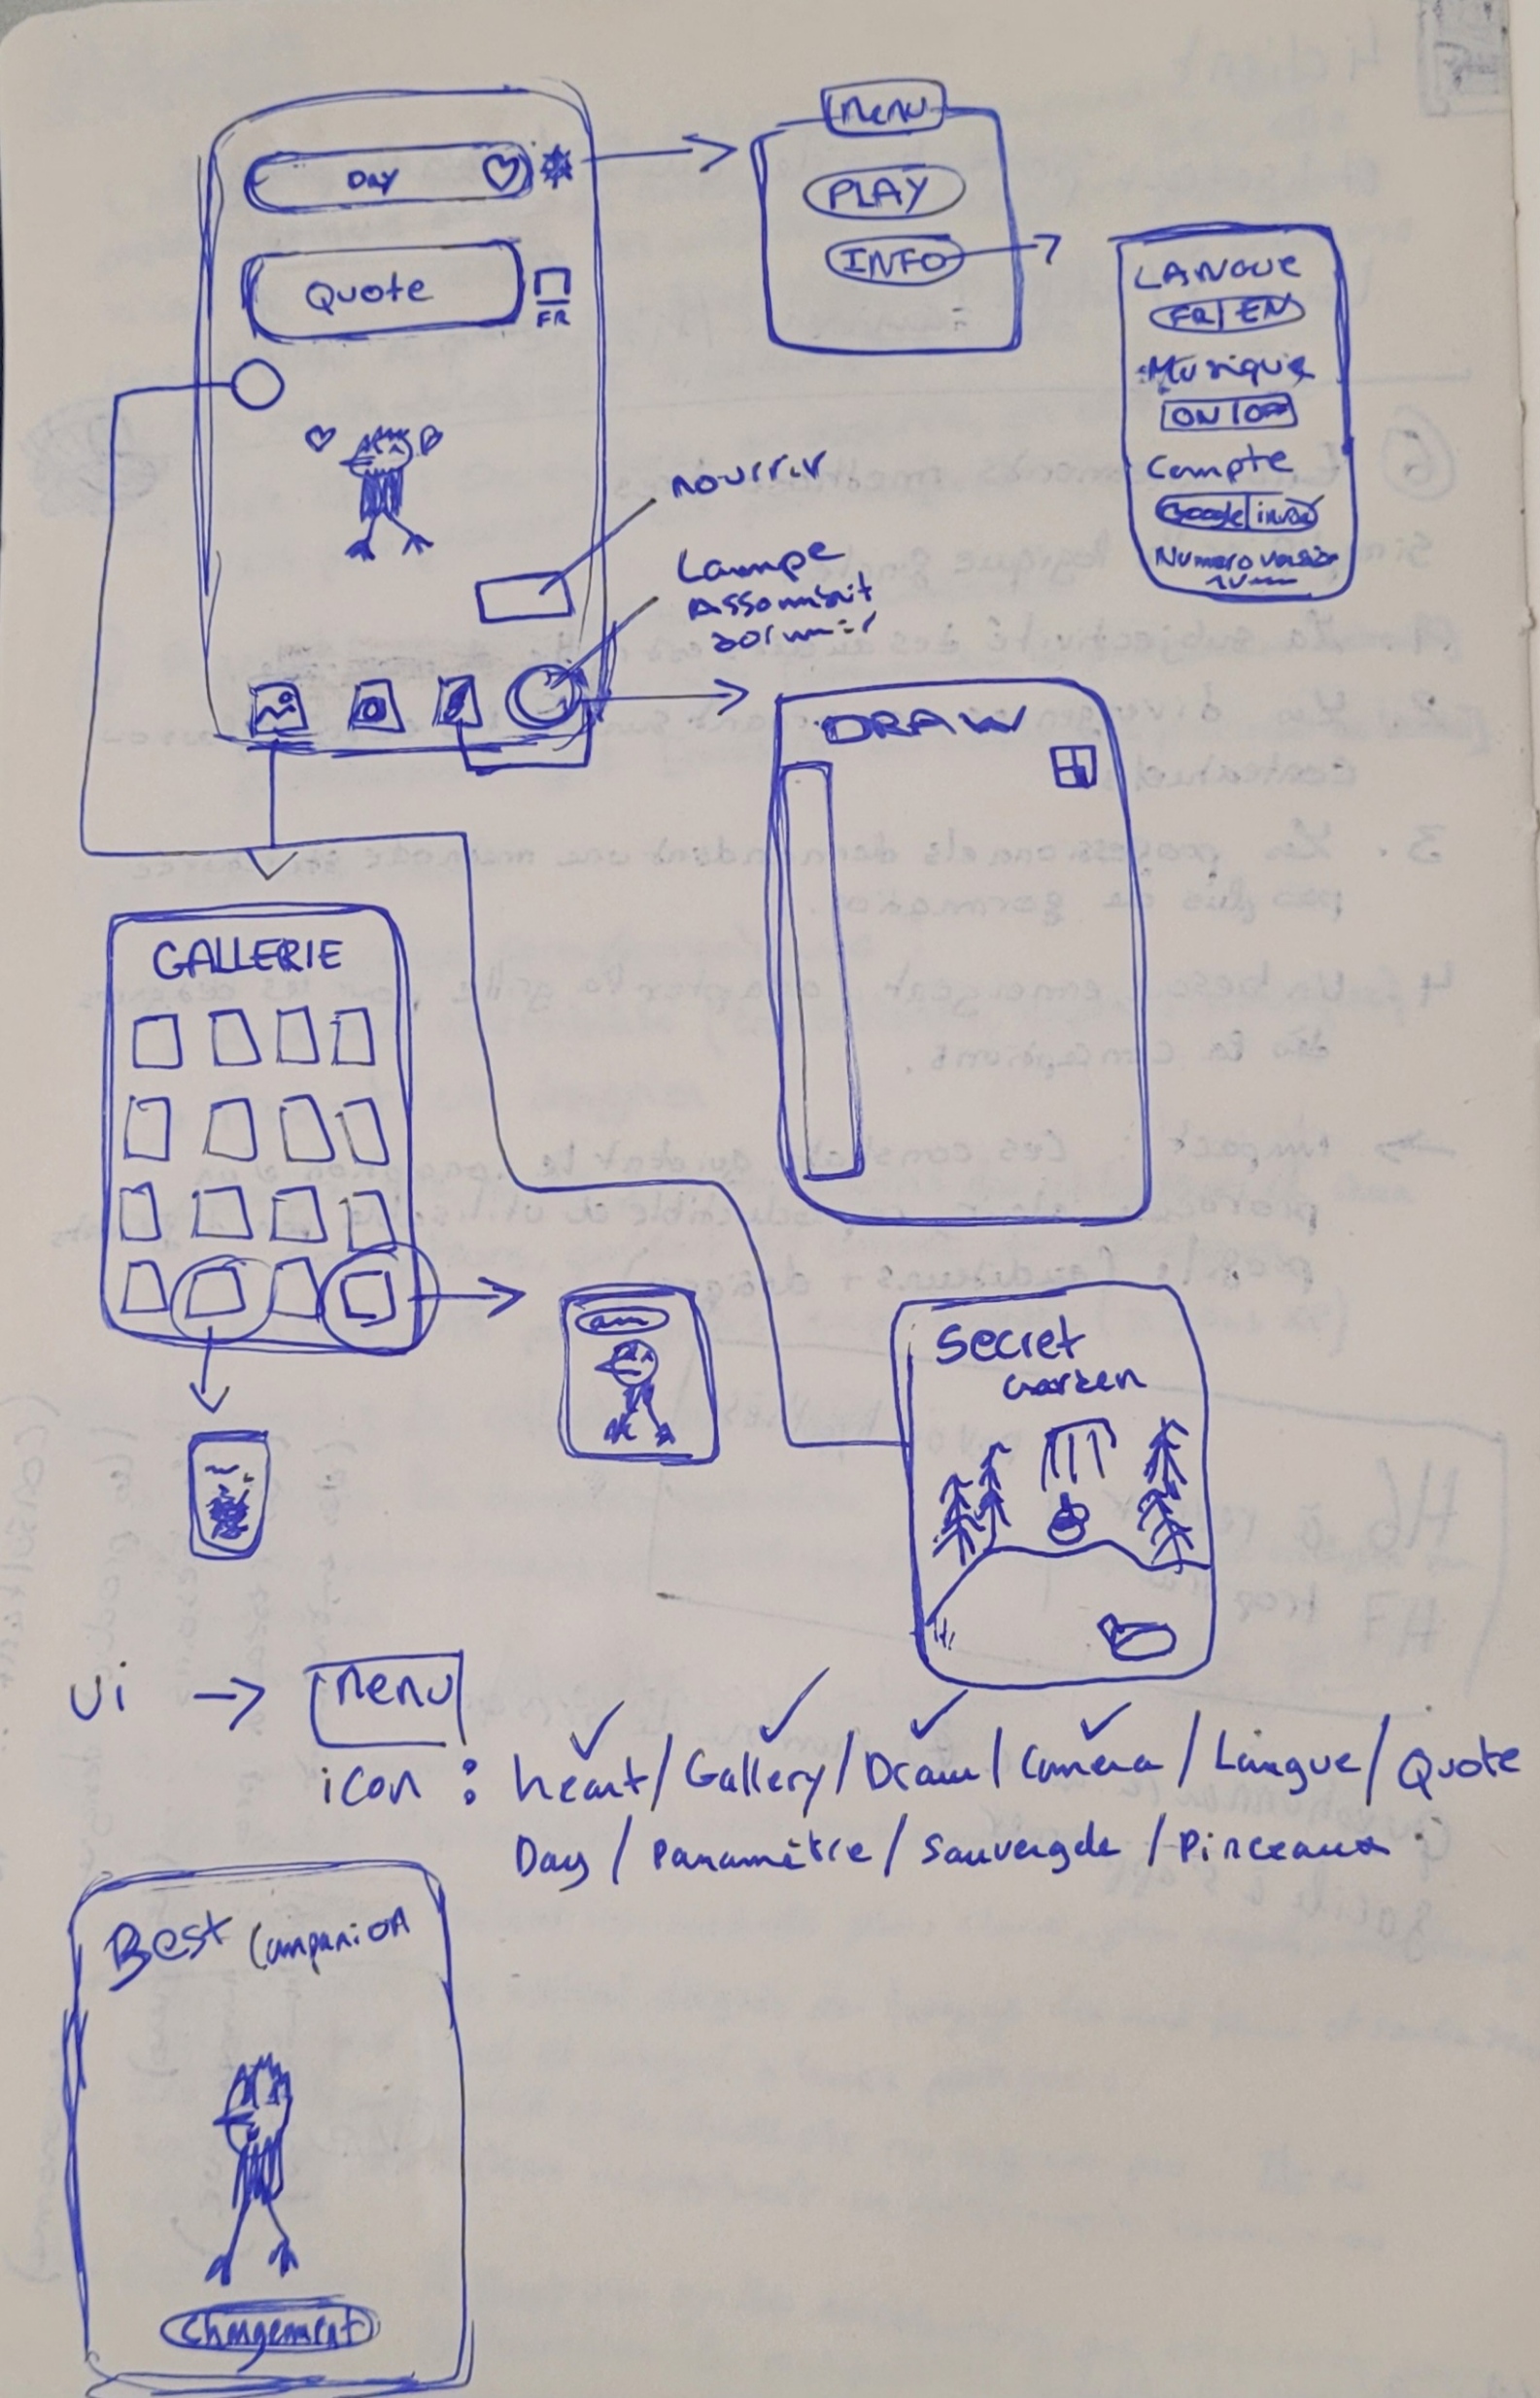 DAY
Quote
FR
Menu
PLAY
INFO
LANGUE
FR | EN
Musique
ON | OFF
Compte
Google
Numero version
nourrir
Lampe
Assombrit
dormir
DRAW
GALLERIE
Secret
Garden
Ui → Menu
icon : heart / Gallery / Draw / Camera / Langue / Quote
Day / Paramètre / Sauvergde / Pinceaux
Best Companion
Chargement